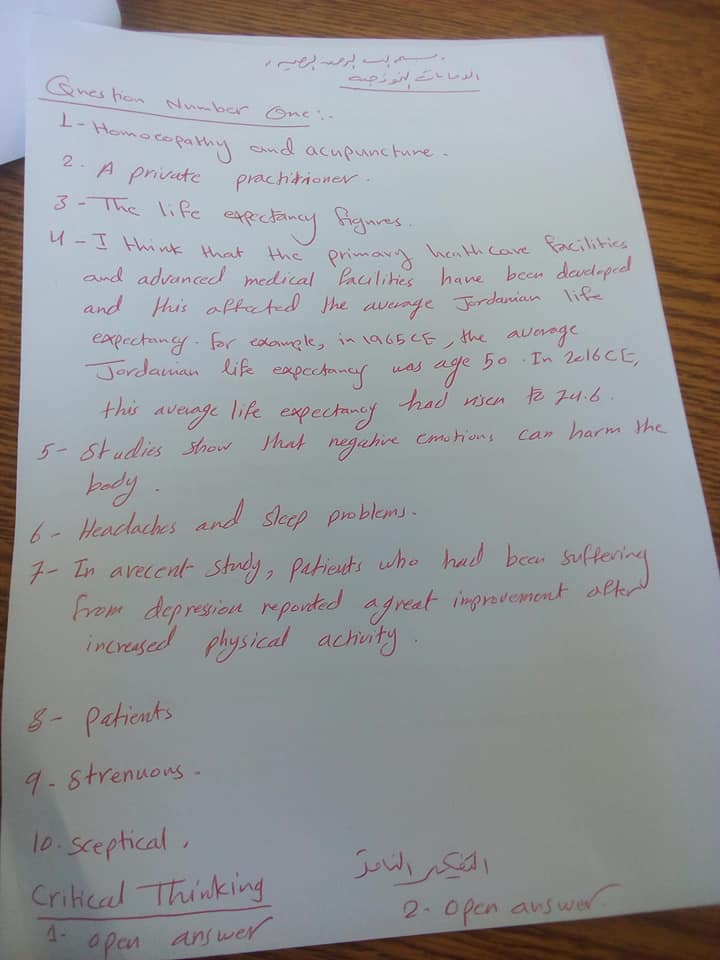 بسم الله الرحمن الرحيم
الاجابات النموذجية
Question Number One:-
1- Homoeopathy and acupuncture.
2. A private practitioner.
3 - The life expectancy figures.
4 - I think that the primary healthcare facilities
and advanced medical facilities have been developed
and this affected the average Jordanian life
expectancy. For example, in 1965 CE, the average
Jordanian life expectancy was age 50. In 2016 CE,
this average life expectancy had risen to 74.6.
5- Studies show that negative emotions can harm the
body.
6 - Headaches and sleep problems.
7- In arecent study, patients who had been suffering
from depression reported agreat improvement after
increased physical activity.
8- patients
9- Strenuous.
10. Sceptical.
Critical Thinking التفكير الناقد
1- open answer 2- open answer.